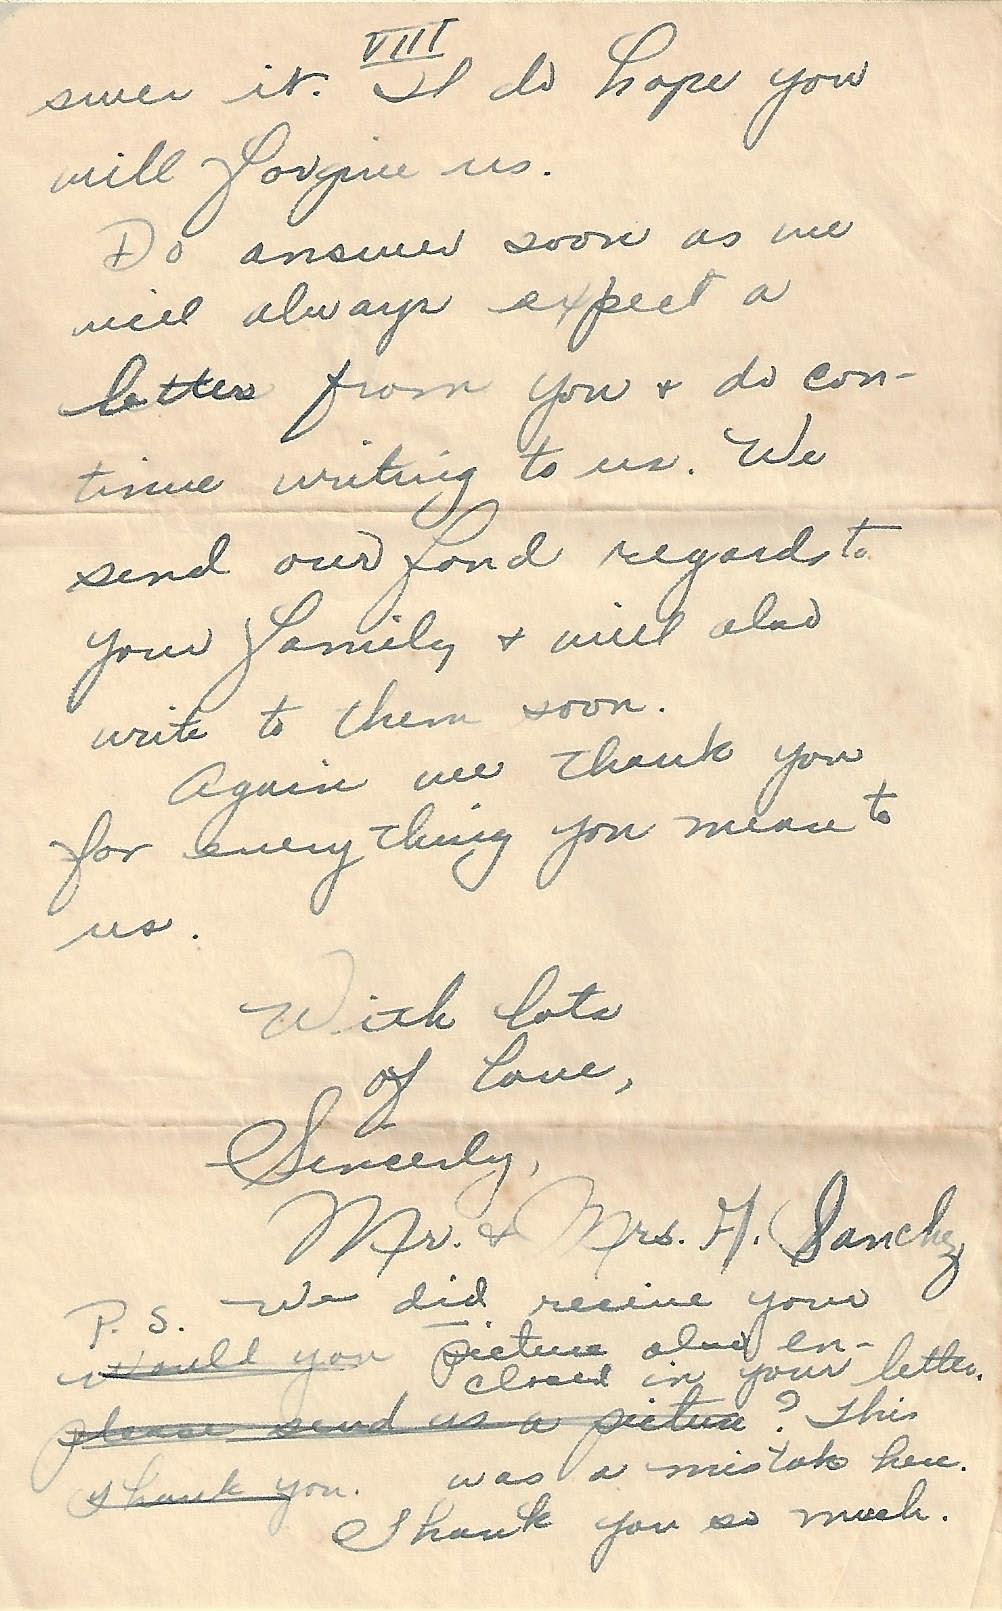 VIII
swer it. I do hope you
will forgive us.
Do answer soon as we
will always expect a
letter from you & do con-
tinue writing to us. We
send our fond regards to
your family & will also
write to them soon.
Again we thank you
for everything you mean to
us.
With lots
of love,
Sincerly,
Mr. & Mrs. H. Sanchez
P.S. We did receive your
would you picture also en-
closed in your letter.
please send us a picture? This
Thank you. was a mistake here.
Thank you so much.